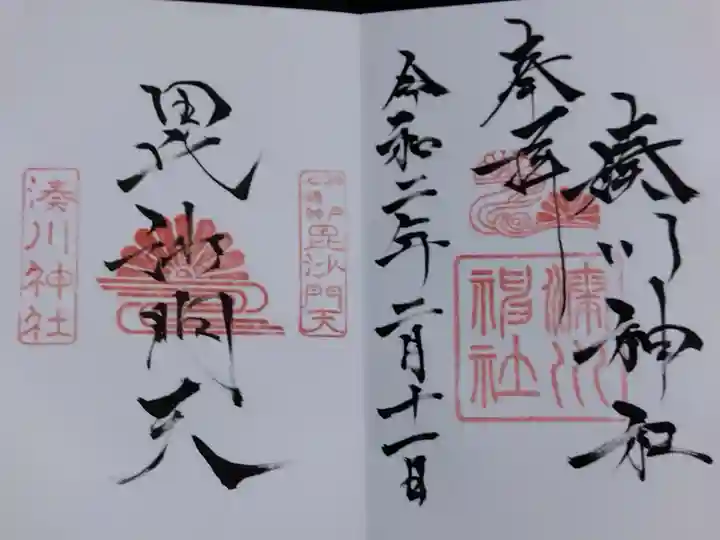 湊川神社
奉拝
湊川神社
令和二年二月十一日
神戸七福神
毘沙門天
毘沙門天
湊川神社